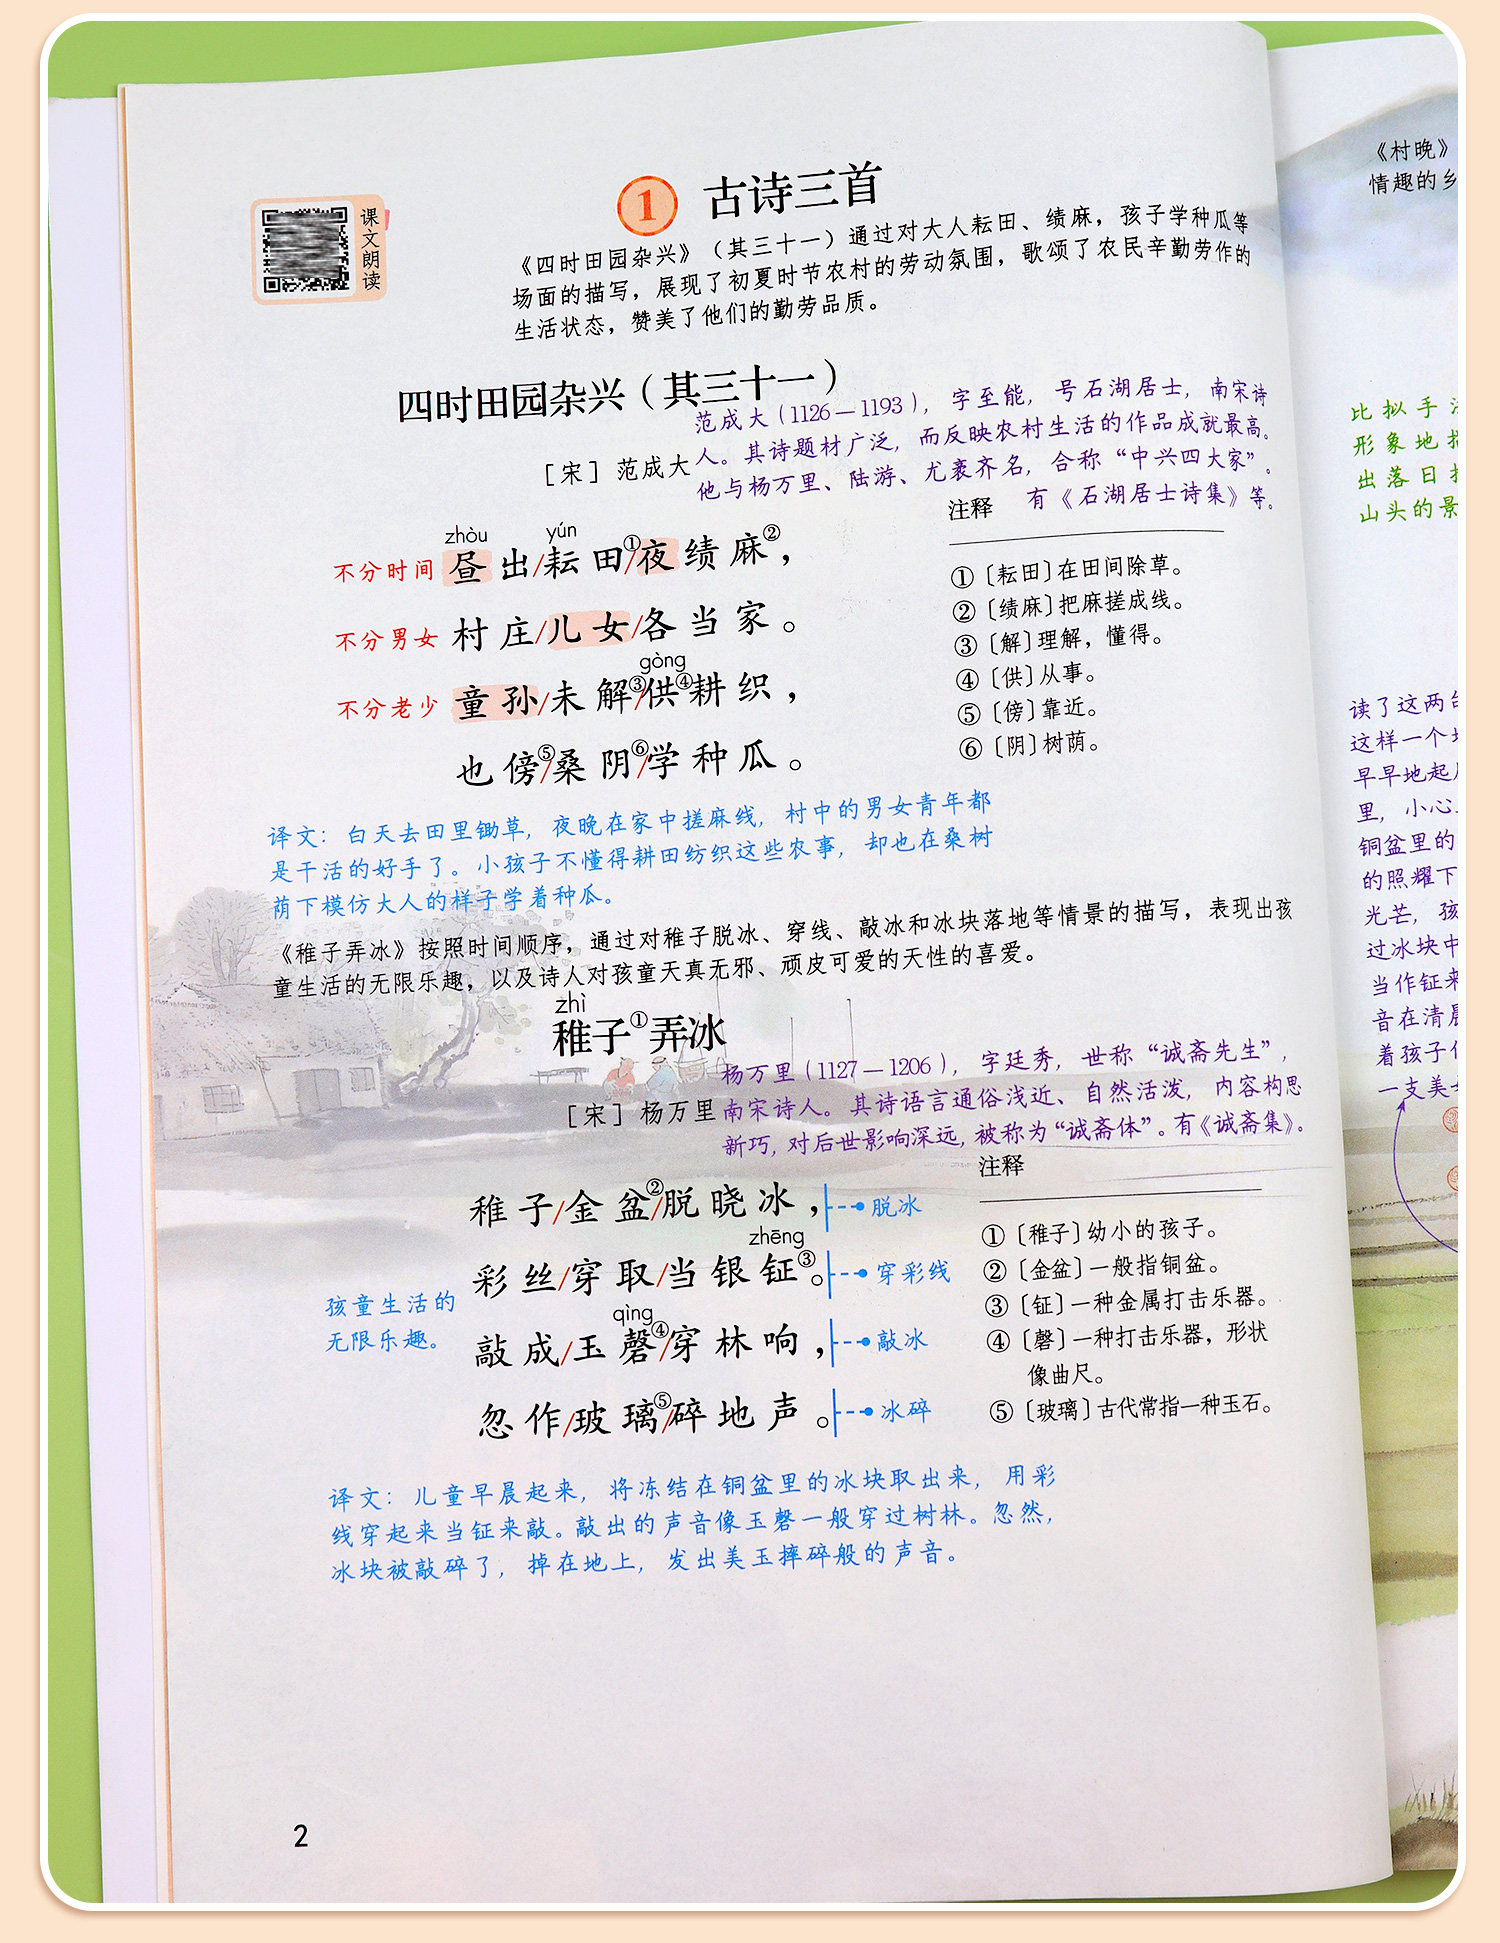 课文朗读
1 古诗三首
《四时田园杂兴》（其三十一）通过对大人耘田、绩麻，孩子学种瓜等
场面的描写，展现了初夏时节农村的劳动氛围，歌颂了农民辛勤劳作的
生活状态，赞美了他们的勤劳品质。
四时田园杂兴（其三十一）
［宋］范成大
范成大（1126—1193），字至能，号石湖居士，南宋诗
人。其诗题材广泛，而反映农村生活的作品成就最高。
他与杨万里、陆游、尤袤齐名，合称“中兴四大家”。
有《石湖居士诗集》等。
zhòu yún
不分时间 昼出/耘田①/夜绩麻②，
不分男女 村庄/儿女/各当家。
gòng
不分老少 童孙/未解③/供④耕织，
也傍⑤/桑阴⑥/学种瓜。
注释
①〔耘田〕在田间除草。
②〔绩麻〕把麻搓成线。
③〔解〕理解，懂得。
④〔供〕从事。
⑤〔傍〕靠近。
⑥〔阴〕树荫。
译文：白天去田里锄草，夜晚在家中搓麻线，村中的男女青年都
是干活的好手了。小孩子不懂得耕田纺织这些农事，却也在桑树
荫下模仿大人的样子学着种瓜。
《稚子弄冰》按照时间顺序，通过对稚子脱冰、穿线、敲冰和冰块落地等情景的描写，表现出孩
童生活的无限乐趣，以及诗人对孩童天真无邪、顽皮可爱的天性的喜爱。
zhì
稚子①弄冰
［宋］杨万里
杨万里（1127—1206），字廷秀，世称“诚斋先生”，
南宋诗人。其诗语言通俗浅近、自然活泼，内容构思
新巧，对后世影响深远，被称为“诚斋体”。有《诚斋集》。
稚子/金盆②/脱晓冰， 脱冰
zhēng
彩丝/穿取/当银钲③。 穿彩线
qìng
敲成/玉磬④/穿林响， 敲冰
忽作/玻璃⑤/碎地声。 冰碎
孩童生活的
无限乐趣。
注释
①〔稚子〕幼小的孩子。
②〔金盆〕一般指铜盆。
③〔钲〕一种金属打击乐器。
④〔磬〕一种打击乐器，形状
像曲尺。
⑤〔玻璃〕古代常指一种玉石。
译文：儿童早晨起来，将冻结在铜盆里的冰块取出来，用彩
线穿起来当钲来敲。敲出的声音像玉磬一般穿过树林。忽然，
冰块被敲碎了，掉在地上，发出美玉摔碎般的声音。
2
《村晚》
情趣的乡
比拟手
形象地
出落日
山头的景
读了这两
这样一个
早早地起
里，小心
铜盆里的
的照耀下
光芒，孩
过冰块中
当作钲来
音在清晨
着孩子
一支美